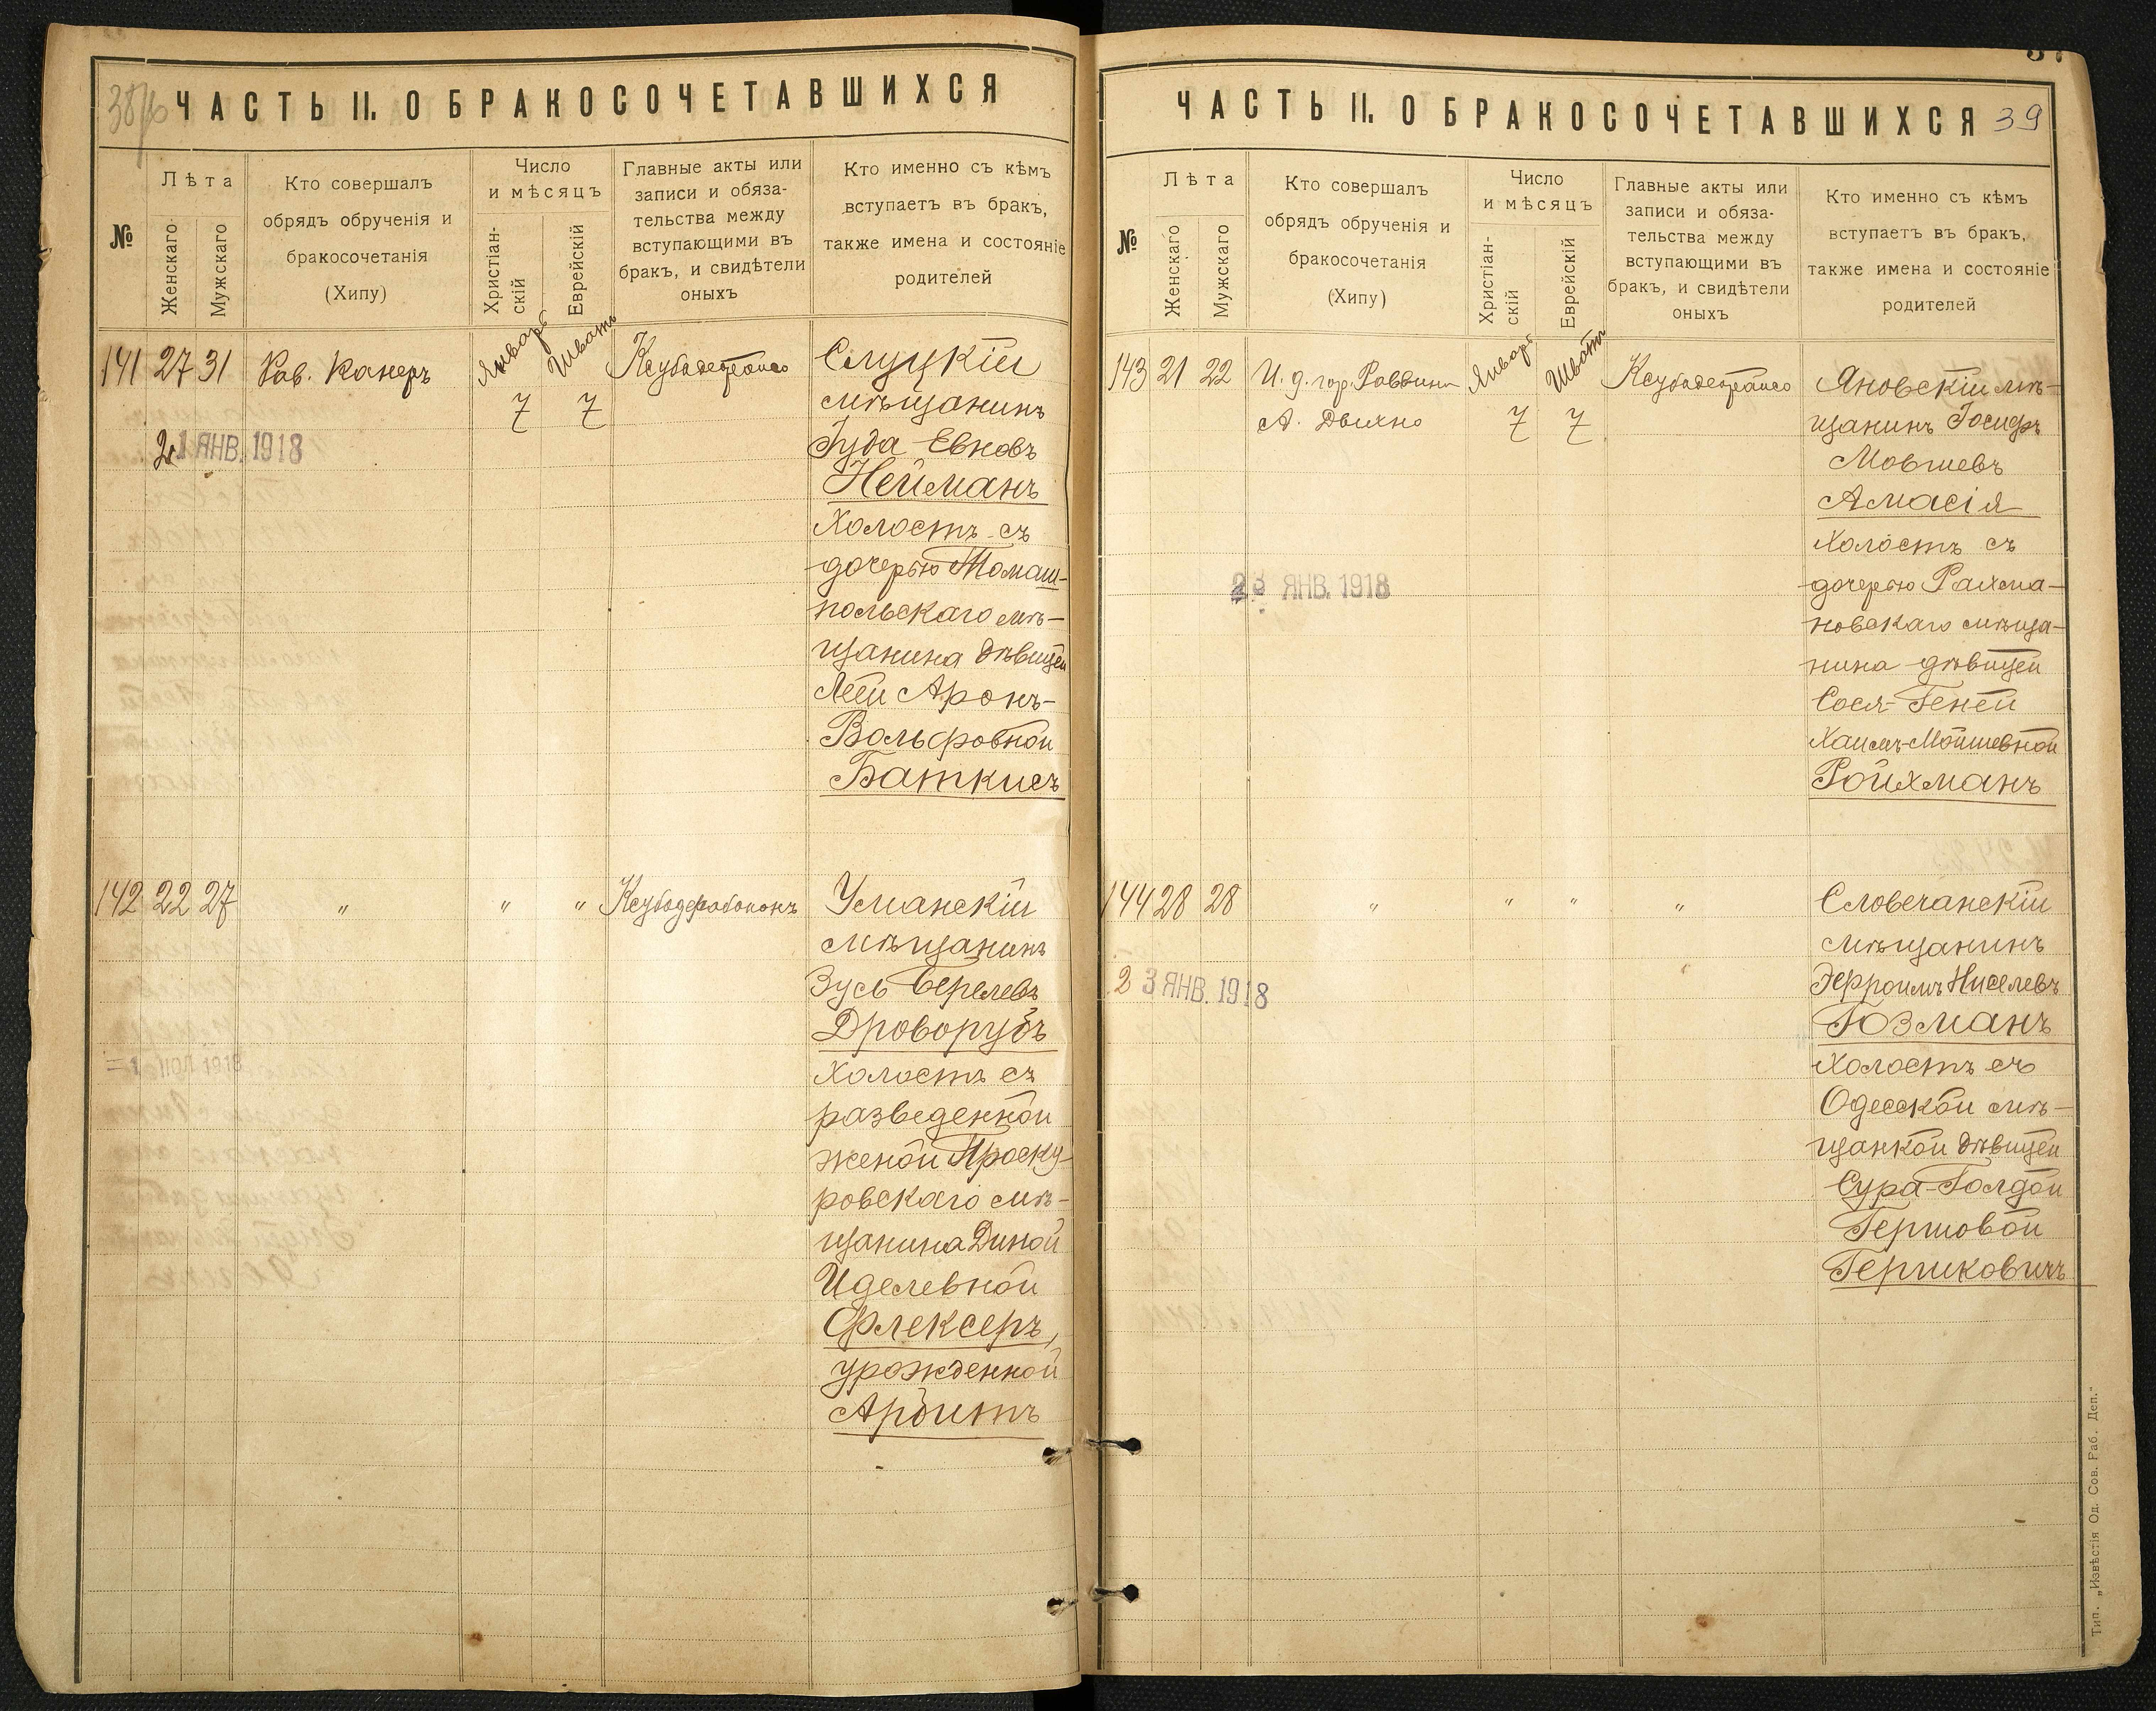 38 об
ЧАСТЬ II. О БРАКОСОЧЕТАВШИХСЯ
№
Лѣта
Женскаго
Мужскаго
Кто совершалъ
обрядъ обрученія и
бракосочетанія
(Хипу)
Число
и мѣсяцъ
Христіан-
скій
Еврейскій
Главные акты или
записи и обяза-
тельства между
вступающими въ
бракъ, и свидѣтели
оныхъ
Кто именно съ кѣмъ
вступаетъ въ бракъ,
также имена и состояніе
родителей
141 27 31 Рав. Канеръ Январь Шватъ
7 7
21 ЯНВ. 1918
Слуцкій
мѣщанинъ
Іуда Евновъ
Нейманъ
холостъ съ
дочерью Томаш-
польскаго мѣ-
щанина дѣвицей
Леей Аронъ-
Вольфовной
Баткисъ
142 22 27 " " "
1918
Уманскій
мѣщанинъ
Зусь Берелевъ
Дроворубъ
холостъ съ
разведенной
женой Проску-
ровскаго мѣ-
щанина Диной
Иделевной
Флексеръ,
урожденной
Арбитъ
ЧАСТЬ II. О БРАКОСОЧЕТАВШИХСЯ 39
№
Лѣта
Женскаго
Мужскаго
Кто совершалъ
обрядъ обрученія и
бракосочетанія
(Хипу)
Число
и мѣсяцъ
Христіан-
скій
Еврейскій
Главные акты или
записи и обяза-
тельства между
вступающими въ
бракъ, и свидѣтели
оныхъ
Кто именно съ кѣмъ
вступаетъ въ бракъ,
также имена и состояніе
родителей
143 21 22 И. д. гор. Раввина Январь Шватъ
А. 7 7
23 ЯНВ. 1918
Яновскій мѣ-
щанинъ Іосифъ
Мовшевъ
Амасія
холостъ съ
дочерью Рахма-
новскаго мѣща-
нина дѣвицей
Сося-Геней
Хаимъ-Мойшевной
Ройхманъ
144 28 28 " " " "
23 ЯНВ. 1918
Словечанскій
мѣщанинъ
Эфроимъ Нисель​евъ
Гозманъ
холостъ съ
Одесской мѣ-
щанкой дѣвицей
Сура-Голдой
Гершовой
Гершковичъ
Тип. „Извѣстія Од. Сов. Раб. Деп."